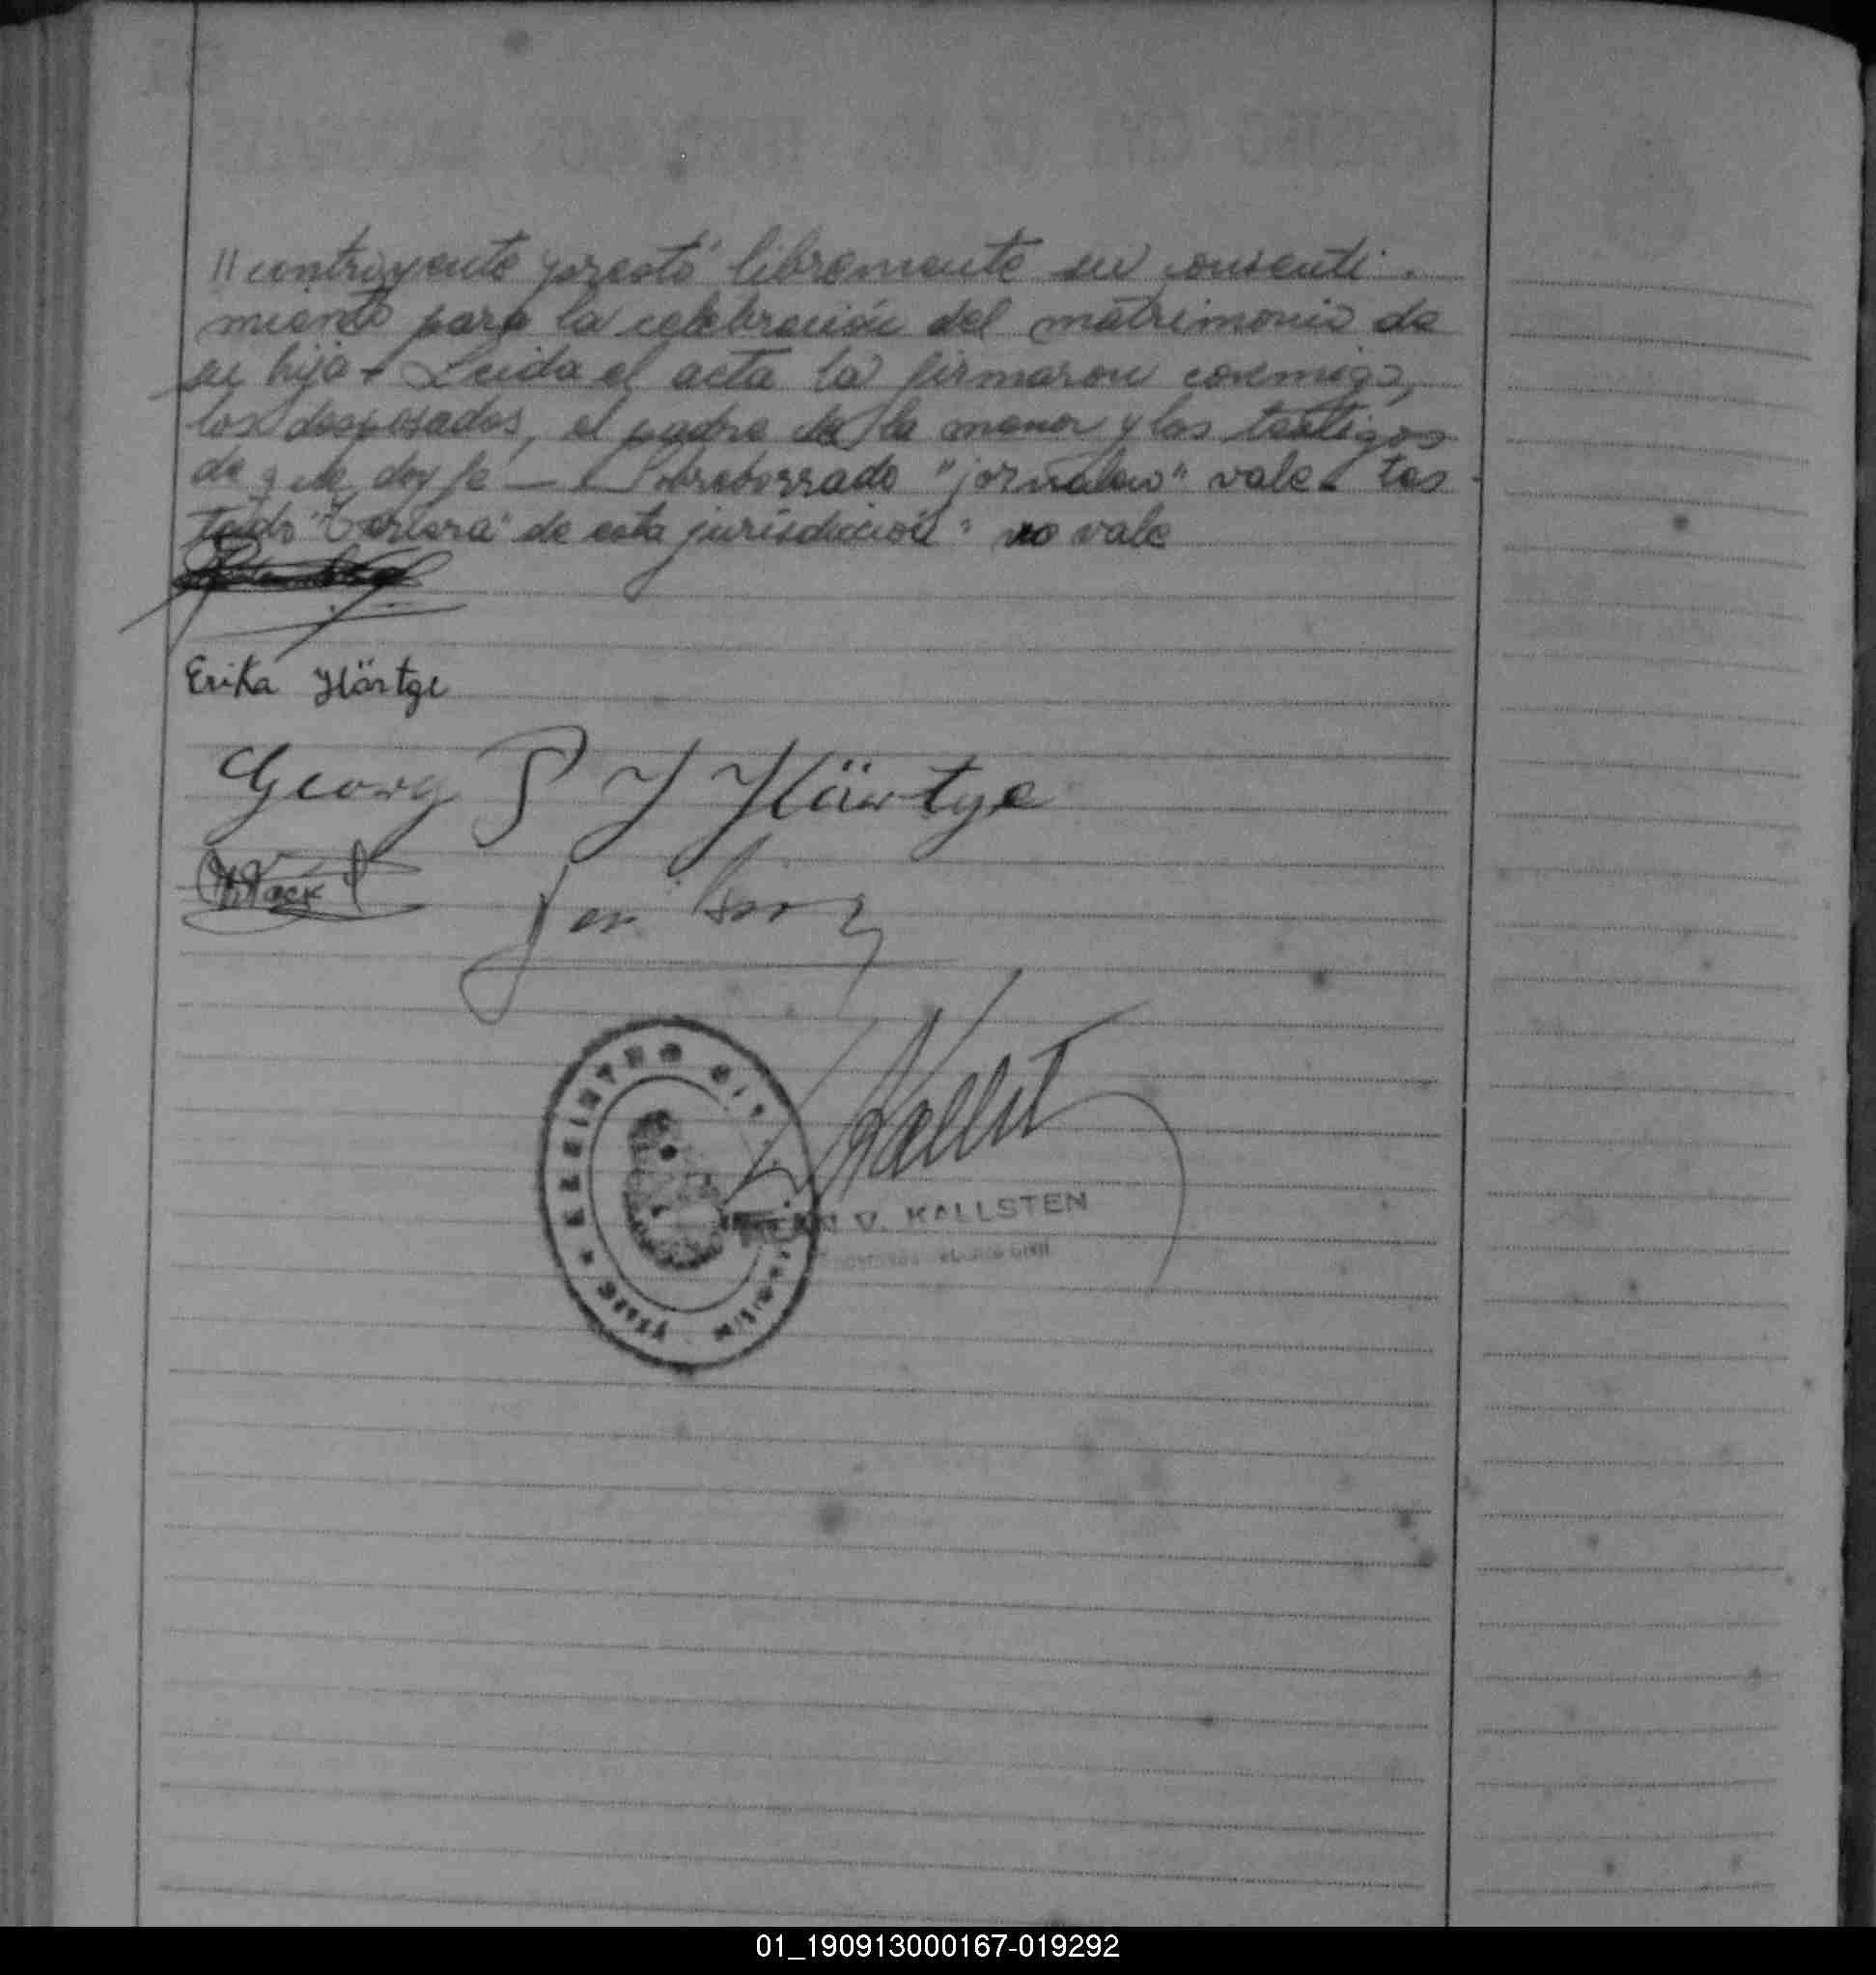 contrayente prestó libremente su consenti-
miento para la celebración del matrimonio de
su hija - Leida el acta la firmaron conmigo,
los desposados, el padre de la menor y los testigos
de que doy fe — Sobreborrado "jornalero" vale - tes-
tado de esta jurisdicción" no vale
Erika Härtge
Georg P J Härtge
REGISTRO
V. KALLSTEN
01_190913000167-019292